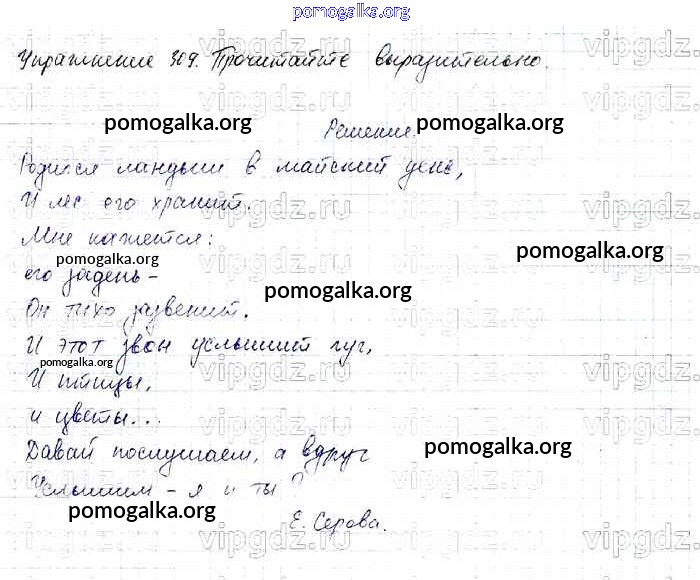 pomogalka.org
Упражнение 309. Прочитайте выразительно.
vipgdz.ru
pomogalka.org
pomogalka.org
Решение.
Родился ландыш в майский день,
И лес его хранит.
vipgdz.ru
Мне кажется:
pomogalka.org
pomogalka.org
его задень –
pomogalka.org
Он тихо зазвенит.
И этот звон услышит луг,
pomogalka.org
И птицы,
vipgdz.ru
и цветы...
Давай послушаем, а вдруг
pomogalka.org
Услышим – я и ты?
pomogalka.org
Е. Серова.
vipgdz.ru